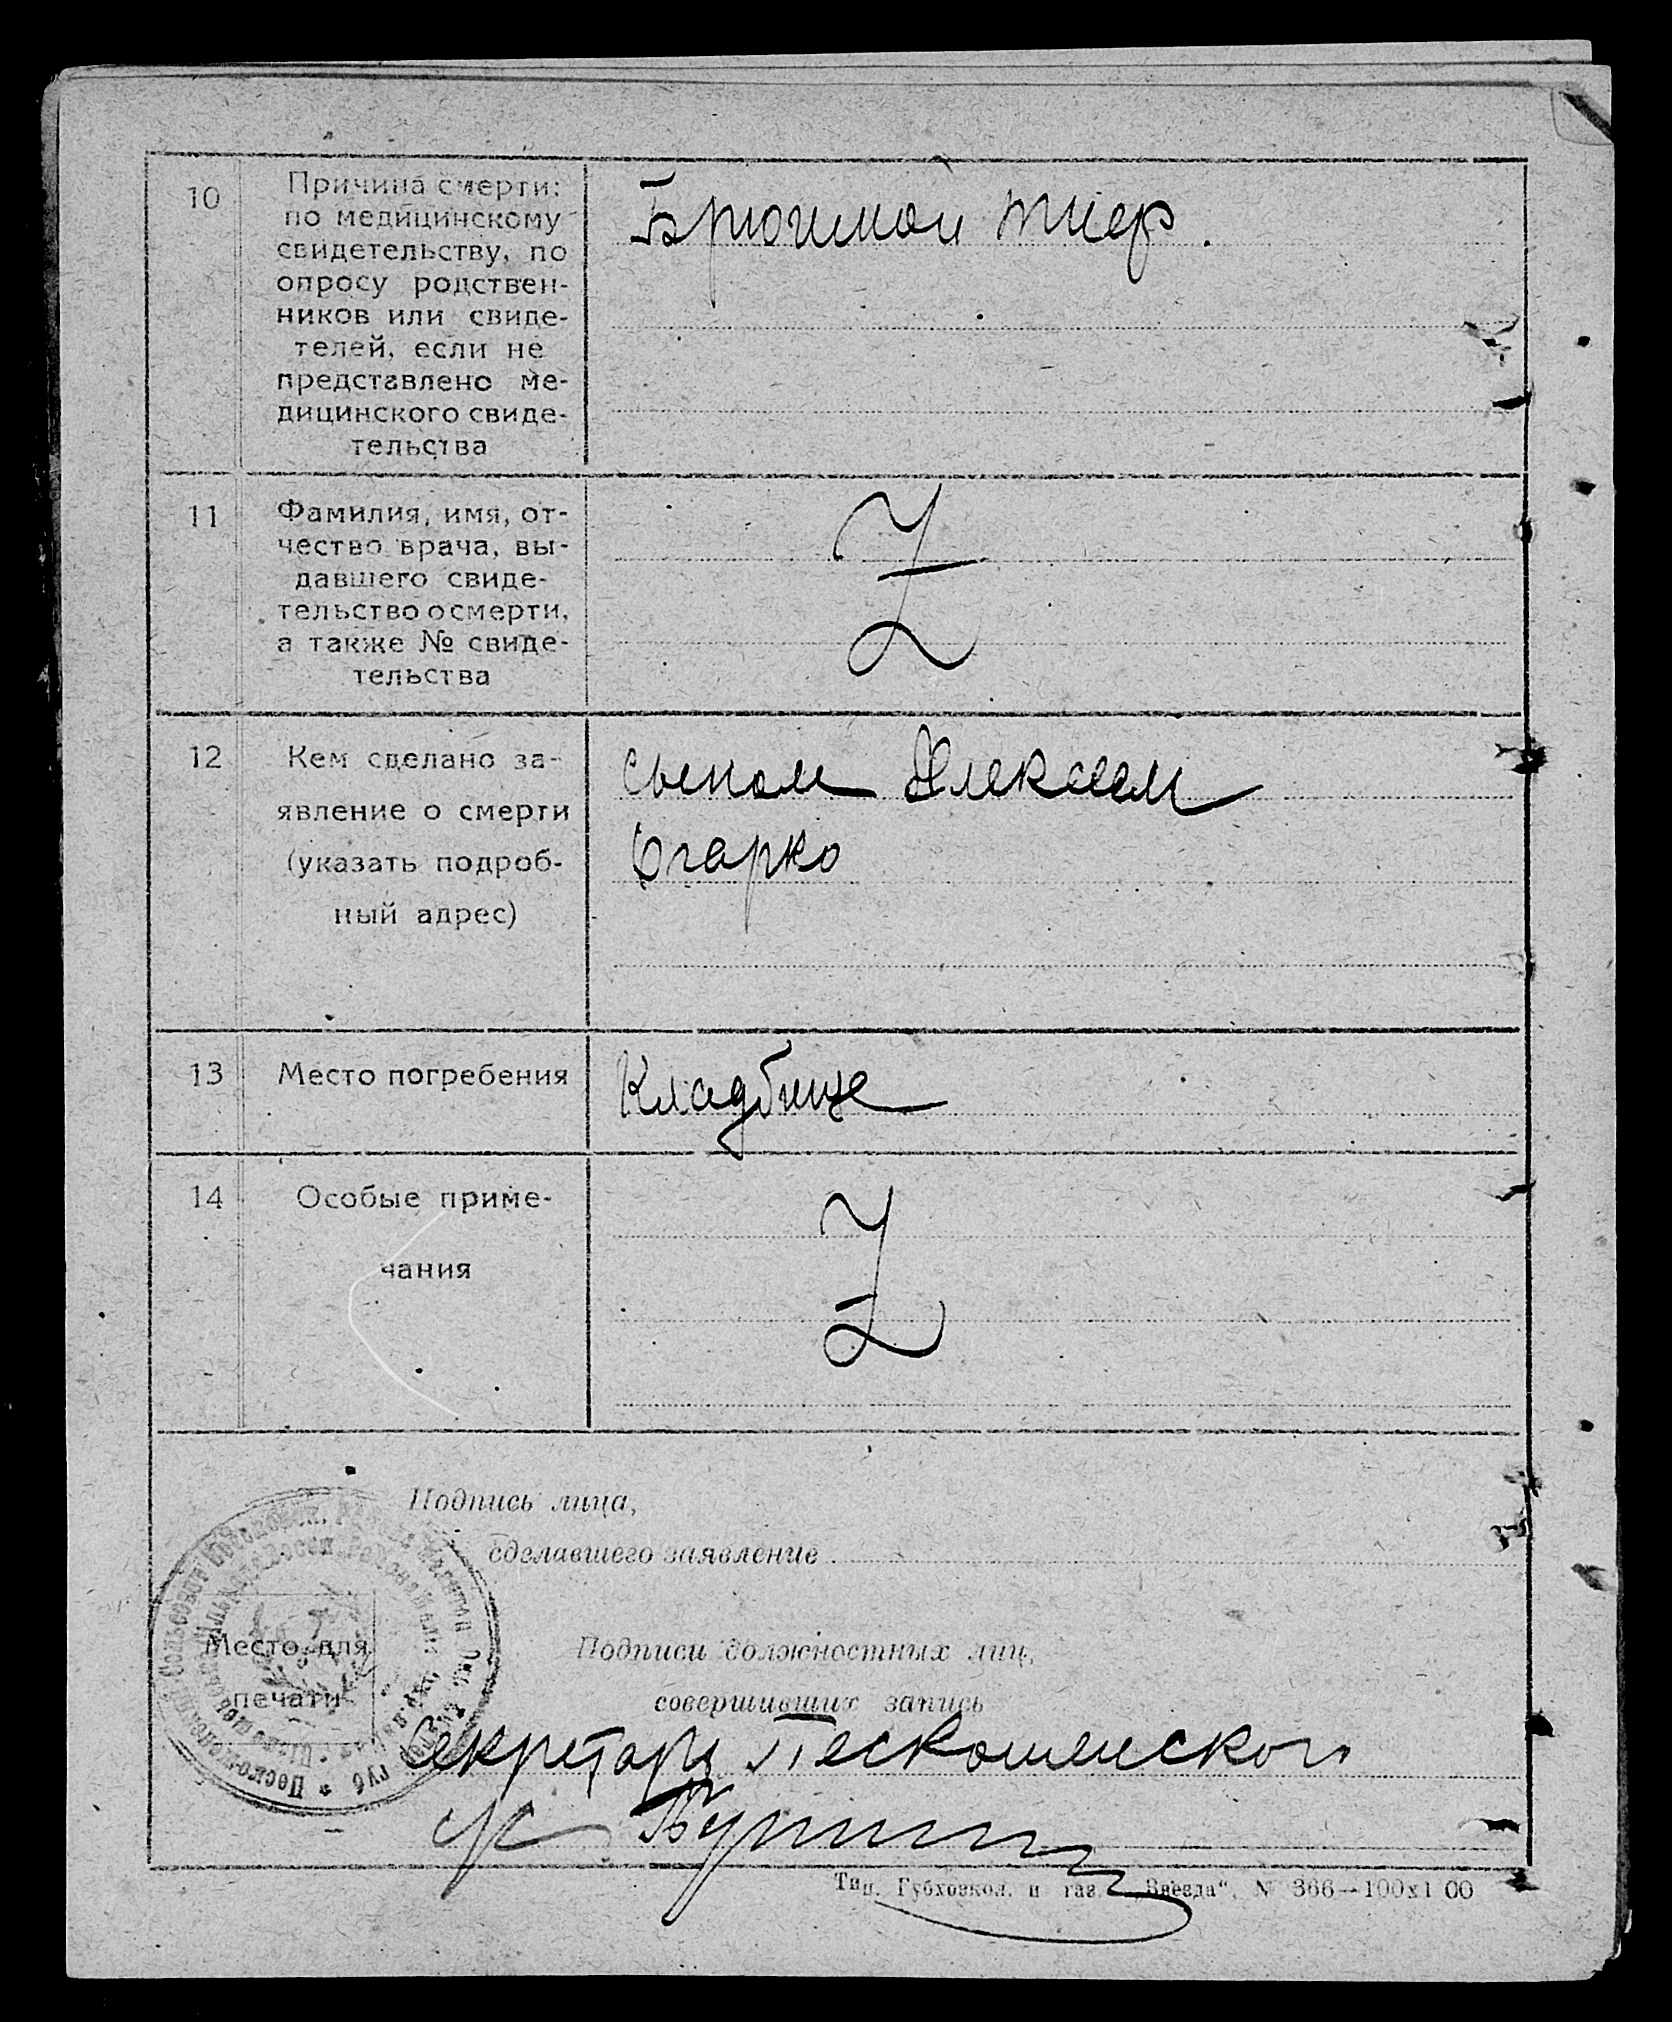 10
Причина смерти:
по медицинскому
свидетельству, по
опросу родствен-
ников или свиде-
телей, если не
представлено ме-
дицинского свиде-
тельства
Брюшной тиф.
11
Фамилия, имя, от-
чество врача, вы-
давшего свиде-
тельство о смерти,
а также № свиде-
тельства
Z
12
Кем сделано за-
явление о смерти
(указать подроб-
ный адрес)
сыном Алексеем
Огарко
13
Место погребения
Кладбище
14
Особые приме-
чания
Z
Подпись лица,
сделавшего заявление
Место для
печати
Подписи должностных лиц,
совершивших запись
Секретарь Пескошинской
Тип. Губховкол. и газ. „Звезда“, № 366—100х1 00